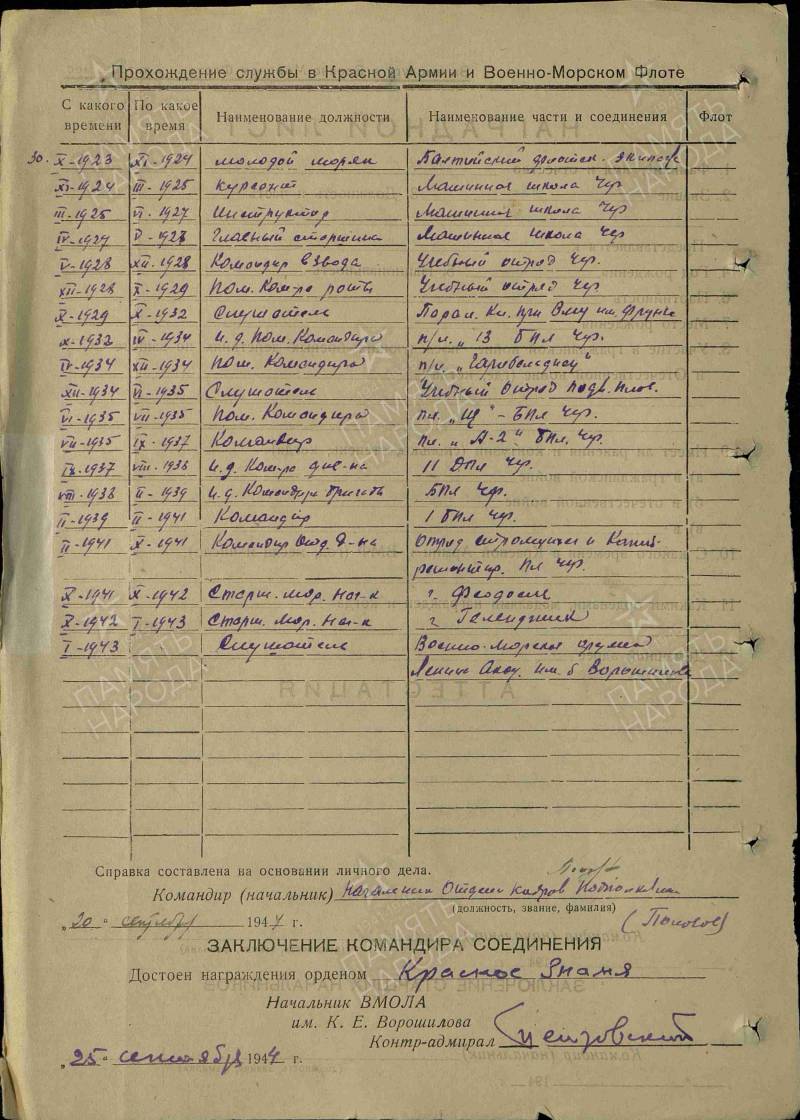 Прохождение службы в Красной Армии и Военно-Морском Флоте
С какого времени По какое время Наименование должности Наименование части и соединения Флот
30. X-1923 XI-1924 молодой моряк Балтийский флотск. экипаж
XI-1924 III-1925 курсант Машинная школа Чф
III-1925 VI-1927 Инструктор Машинная школа Чф
IV-1927 V-1928 Главный старшина Машинная школа Чф
V-1928 XII-1928 Командир взвода Учебный отряд Чф.
XII-1928 X-1929 Пом. Ком-ра роты Учебный отряд Чф
X-1929 X-1932 Слушатель Парал. Кл. при Вму им. Фрунзе
X-1932 IV-1934 и.д. Пом. Командира п/л. "13 БПЛ Чф.
IV-1934 XII-1934 Пом. Командира п/л. "Гарибальдиец"
XII-1934 VI-1935 Слушатель Учебный Отряд подв. плав.
VI-1935 VII-1935 Пом. Командира пл. "Щ" - БПл Чф.
VII-1935 IX-1937 Командир пл. "А-2" БПл. Чф.
IX-1937 VIII-1938 и.д. Ком-ра див-на 11 ДПЛ Чф.
VIII-1938 II-1939 и.д. Командира бригады БПл Чф.
II-1939 II-1941 Командир 1 БПЛ Чф.
II-1941 X-1941 Командир Отд. д-на Отряд строящихся и Капит.
ремонтир. пл Чф.
X-1941 X-1942 Старш. мор. нач-к г. Феодосия
X-1942 I-1943 Старш. мор. нач-к г. Геленджик
I-1943 Слушатель Военно-Морская ордена
Ленина Акад. им. Ворошилова
Справка составлена на основании личного дела.
Командир (начальник) Начальник Отдела кадров Подполковник
(должность, звание, фамилия)
"20" сентября 1944 г.
ЗАКЛЮЧЕНИЕ КОМАНДИРА СОЕДИНЕНИЯ
Достоен награждения орденом Красное Знамя
Начальник ВМОЛА
им. К. Е. Ворошилова
Контр-адмирал
"25" сентября 1944 г.